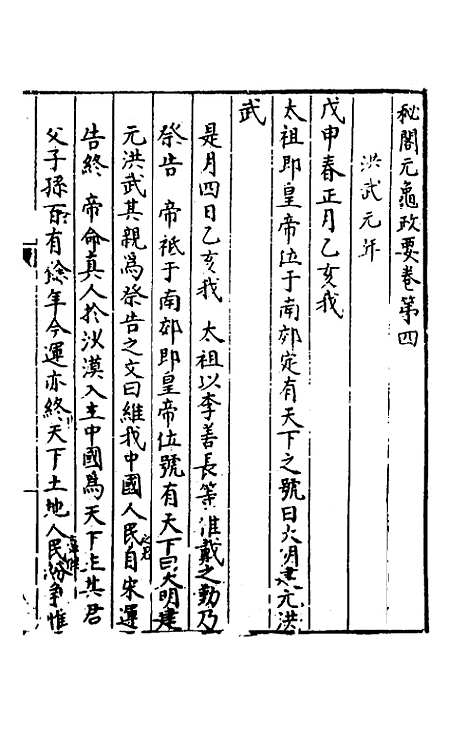 秘閣元龜政要卷第四
洪武元年
戊申春正月乙亥我
太祖即皇帝位于南郊定有天下之號曰大明建元洪
武
是月四日乙亥我 太祖以李善長等推戴之勤乃
祭告 帝祇于南郊即皇帝位號有天下曰大明建
元洪武其親爲祭告之文曰維我中國人民之君自宋運
告終 帝命真人於沙漠入主中國爲天下主其君
父子孫百有餘年今運亦終天下土地人民紛爭惟